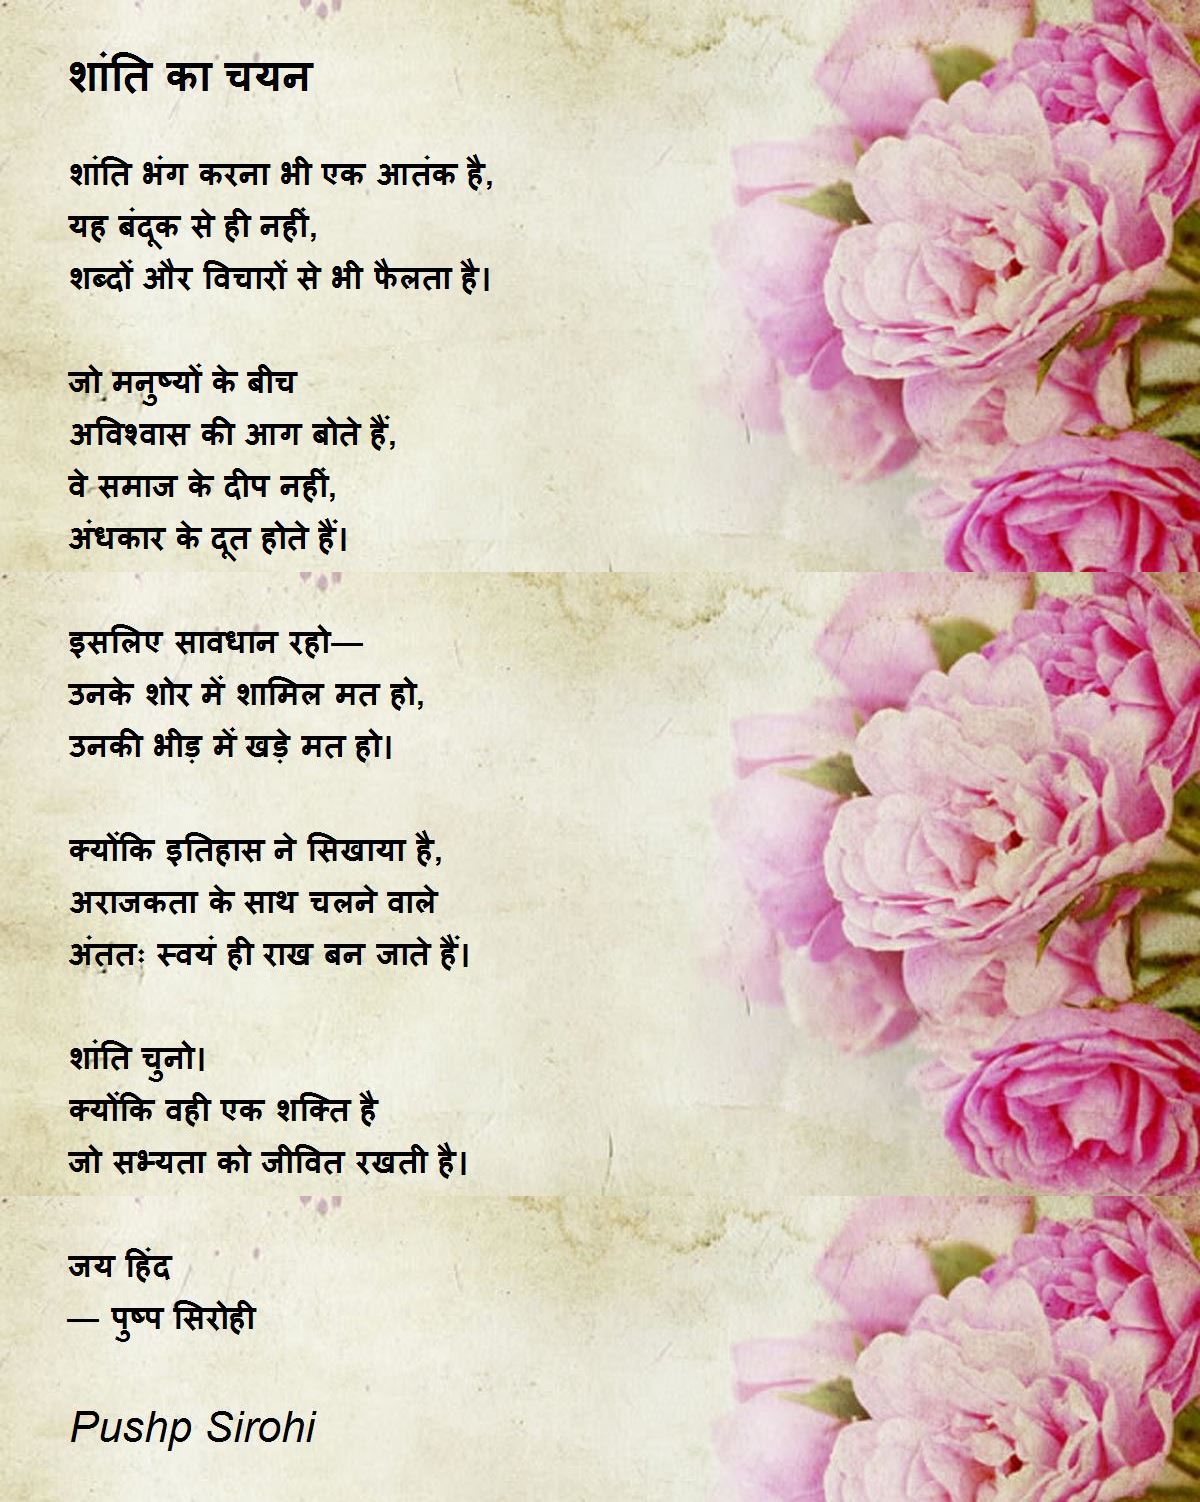 शांति का चयन
शांति भंग करना भी एक आतंक है,
यह बंदूक से ही नहीं,
शब्दों और विचारों से भी फैलता है।
जो मनुष्यों के बीच
अविश्वास की आग बोते हैं,
वे समाज के दीप नहीं,
अंधकार के दूत होते हैं।
इसलिए सावधान रहो—
उनके शोर में शामिल मत हो,
उनकी भीड़ में खड़े मत हो।
क्योंकि इतिहास ने सिखाया है,
अराजकता के साथ चलने वाले
अंततः स्वयं ही राख बन जाते हैं।
शांति चुनो।
क्योंकि वही एक शक्ति है
जो सभ्यता को जीवित रखती है।
जय हिंद
— पुष्प सिरोही
Pushp Sirohi